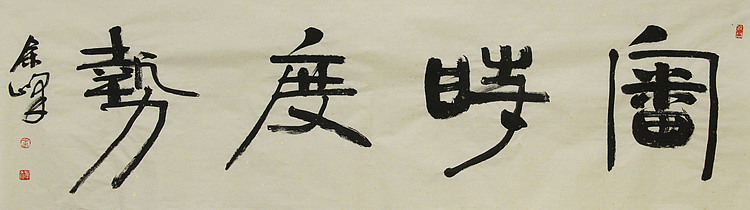 審時度勢
余峰